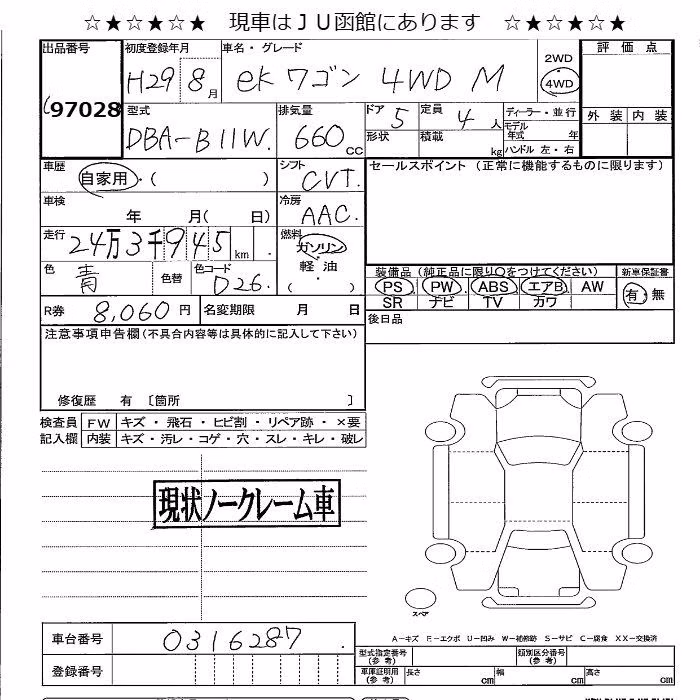 ☆★☆★☆★ 現車はJU函館にあります ☆★☆★☆★
出品番号 97028
初度登録年月 H29 8月
車名・グレード ekワゴン 4WD M
2WD
4WD
評価点
外装 内装
型式 DBA-B11W.
排気量 660 cc
ドア 5
定員 4 人
ディーラー・並行
形状
積載 kg
モデル年式 年
ハンドル 左・右
車歴 自家用・( )
シフト CVT.
セールスポイント(正常に機能するものに限ります)
車検 年 月( 日)
冷房 AAC.
走行 24万3千945km
燃料 ガソリン
軽油
( ・ )
色 青
色替
色コード D26.
装備品(純正品に限り○をつけてください)
新車保証書
PS PW ABS エアB AW
有・無
SR ナビ TV カワ
R券 8,060円
名変期限 月 日
後日品
注意事項申告欄(不具合内容等は具体的に記入して下さい)
修復歴 有 〔箇所 〕
検査員 FW キズ・飛石・ヒビ割・リペア跡・×要
記入欄 内装 キズ・汚レ・コゲ・穴・スレ・キレ・破レ
現状ノークレーム車
スペア
A-キズ E-エクボ U-凹み W-補修跡 S-サビ C-腐食 XX-交換済
車台番号 0316287.
型式指定番号(参考)
類別区分番号(参考)
登録番号
車庫証明用(参考) 長さ cm 幅 cm 高さ cm